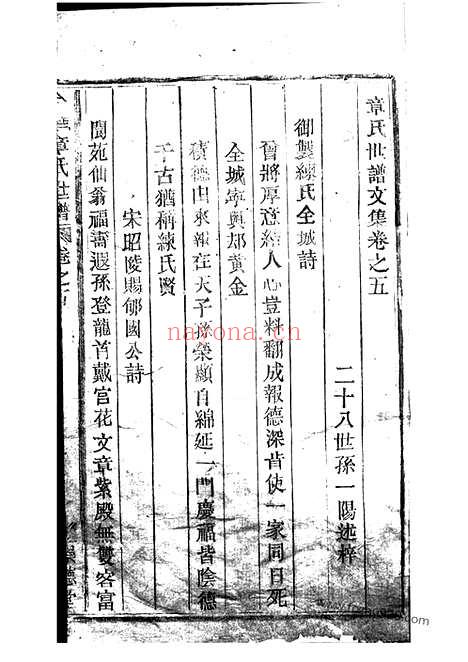 章氏世譜文集卷之五
二十八世孫一陽述梓
御製練氏全城詩
曾將厚意結人心豈料翻成報德深昔使一家同日死
全城寧與刼黃金
積德由來報在天子孫榮顯自綿延一門慶福皆陰德
千古猶稱練氏賢
宋昭陵賜郇國公詩
閬苑仙翁福壽遐孫登龍首戴宮花文章紫殿無雙客富
章氏世譜
卷之
德堂
nayona.cn
zhuokearts.com